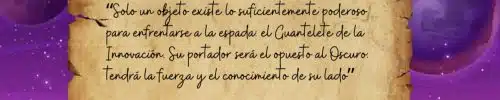 "Solo un objeto existe lo suficientemente poderoso
para enfrentarse a la espada: el Guantelete de la
Innovación. Su portador será el opuesto al Oscuro:
tendrá la fuerza y el conocimiento de su lado"